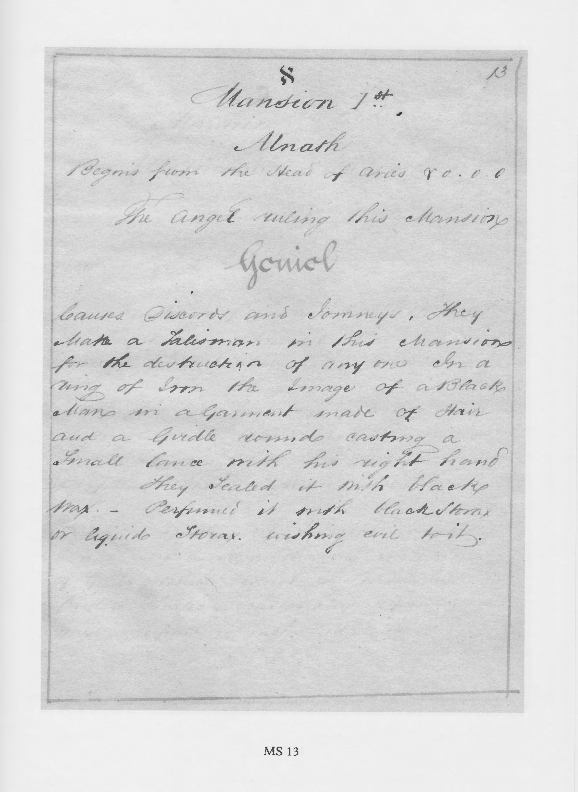 13
8
Mansion 1st.
Alnath
Begins from the Head of Aries ♈ 0. 0 0
The Angel ruling this Mansion
Geniel
Causes Discords and Journeys. They
Make a Talisman in this Mansion
for the destruction of any one In a
ring of Iron the Image of a Black
Man in a Garment made of Hair
and a Girdle round casting a
Small lance with his right hand
They Sealed it with black
Wax. – Perfumed it with black Storax
or liquid Storax. wishing evil to it.
MS 13